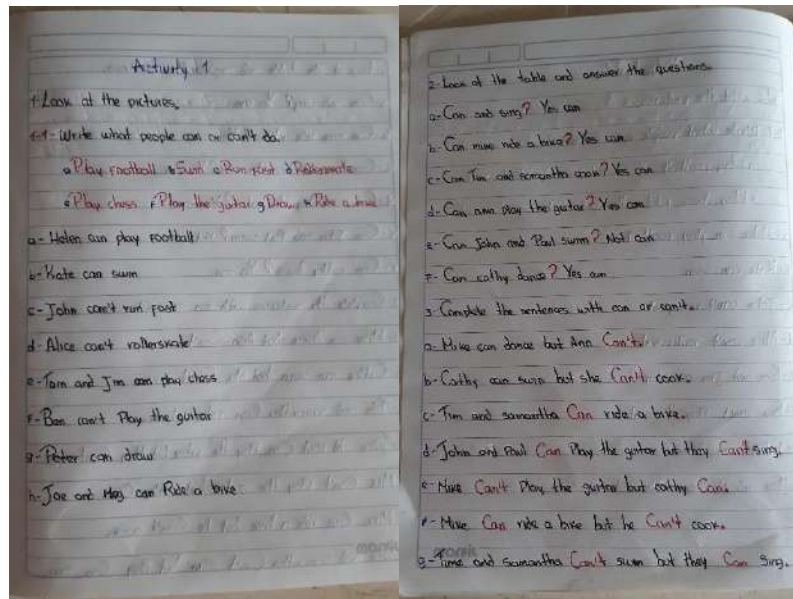 Activity 1
1-Look at the pictures.
1-1-Write what people can or can't do.
a Play Football b Swim c Run fast d Rollerskate
e Play chess f Play the guitar g Draw h Ride a bike
a- Helen can play football
b- Kate can swim
c- John can't run fast
d- Alice can't rollerskate
e- Tom and Jim can play chess
F- Ben can't Play the guitar
g- Peter can draw
h- Joe and Meg can Ride a bike
2- Look at the table and answer the questions.
a- Can and sing? Yes can
b- Can mike ride a bike? Yes can
c- Can Tim and samantha cook? Yes can
d- Can ann play the guitar? Yes can
e- Can John and Paul swim? Not can
F- Can cathy dance? Yes can
3- Complete the sentences with can or can't.
a- Mike can dance but Ann Can't.
b- Cathy can swim but she Can't cook.
c- Tim and samantha Can ride a bike.
d- John and Paul Can Play the guitar but they Can't sing.
e- Mike Can't Play the guitar but cathy Can.
F- Mike Can ride a bike but he Can't cook.
g- Time and samantha Can't swim but they Can sing.